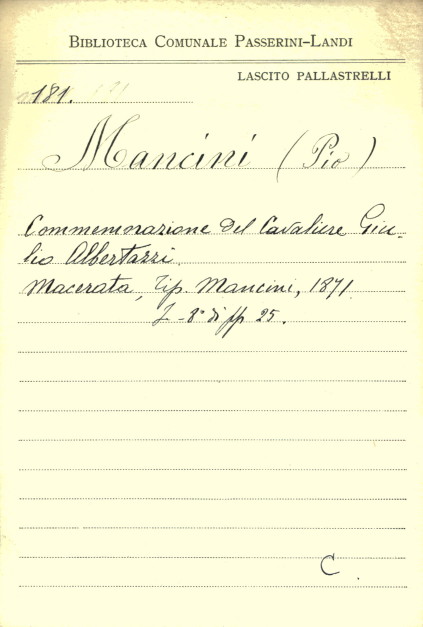 BIBLIOTECA COMUNALE PASSERINI-LANDI
LASCITO PALLASTRELLI
181.
Mancini (Pio)
Commemorazione del Cavaliere Giu-
lio Albertazzi.
Macerata, Tip. Mancini, 1871.
I-8° di pp 25.
C.